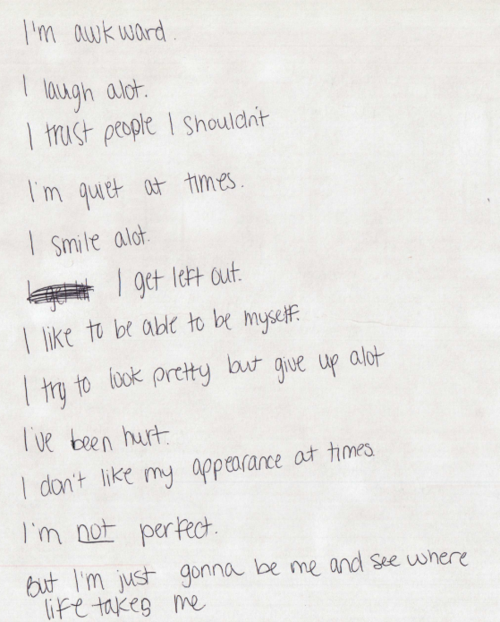 I'm awkward.
I laugh alot.
I trust people I shouldn't
I'm quiet at times.
I smile alot.
I get left out.
I like to be able to be myself.
I try to look pretty but give up alot
I've been hurt.
I don't like my appearance at times.
I'm not perfect.
But I'm just gonna be me and see where
life takes me